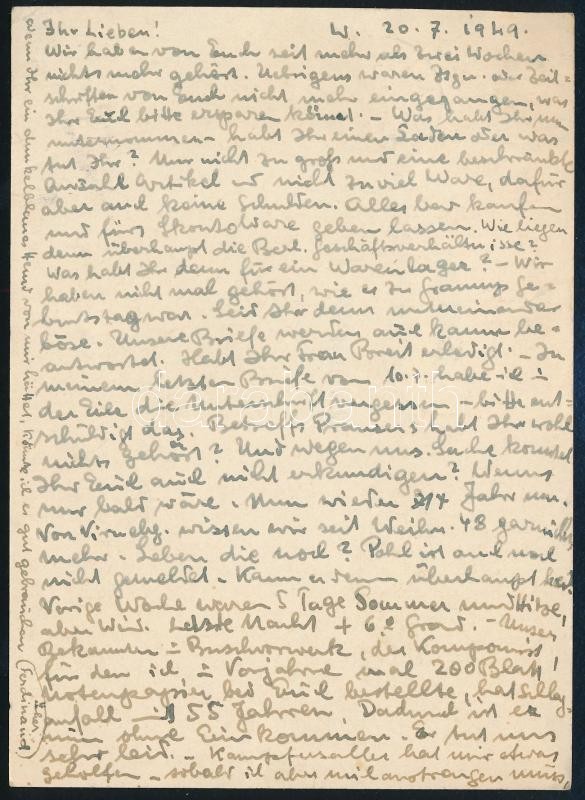 Ihr Lieben! W. 20. 7. 1949.
Wir haben von Euch seit mehr als zwei Wochen
nichts mehr gehört. Uebrigens waren Ztgn. oder Zeit-
schriften von Euch nicht mehr eingegangen, was
Ihr Euch bitte ersparen könnt. – Was habt Ihr nun
unternommen – habt Ihr einen Laden oder was
tut Ihr? Nur nicht zu groß und eine beschränkte
Anzahl Artikel und nicht zuviel Ware, dafür
aber auch keine Schulden. Alles bar kaufen
und fürs Skonto Ware geben lassen. Wie liegen
denn überhaupt die Berl. Geschäftsverhältnisse?
Was habt Ihr denn für ein Warenlager? – Wir
haben nicht mal gehört, wie es zu Grannys Ge-
burtstag war. Seid Ihr denn miteinander
böse. Unsere Briefe werden auch kaum be-
antwortet. Habt Ihr Frau erledigt. – In
meinem letzten Briefe vom 10.7. habe ich i-
der Eile die Unterschrift vergessen – bitte ent-
schuldigt das. Betreffs habt Ihr wohl
nichts gehört? Und wegen uns. Sache konntet
Ihr Euch auch nicht erkundigen? Wenns
nur bald wäre. Nun wieder Jahr um.
Von wissen wir seit Weihn. 48 garnichts
mehr. Leben die noch? Pohl ist auch noch
nicht gemeldet. Kann er denn überhaupt
Vorige Woche waren 5 Tage Sommer und Hitze,
aber Wind. Letzte Nacht + 6° Grad. – Unser
Bekannter i- Buschvorwerk, der Komponist
für den ich i- Vorjahre mal 200 Blatt
Notenpapier bei Euch bestellte, hat Schlag-
anfall – 55 Jahren. Dadurch ist er
nun ohne Einkommen. Er tut uns
sehr leid. – hat mir etwas
geholfen – sobald ich aber mich anstrengen muss,
wenn Ihr ein dunkelblaues Hemd von mir hättet, könnte ich es gut gebrauchen (Ferdinand)
über
darabanth